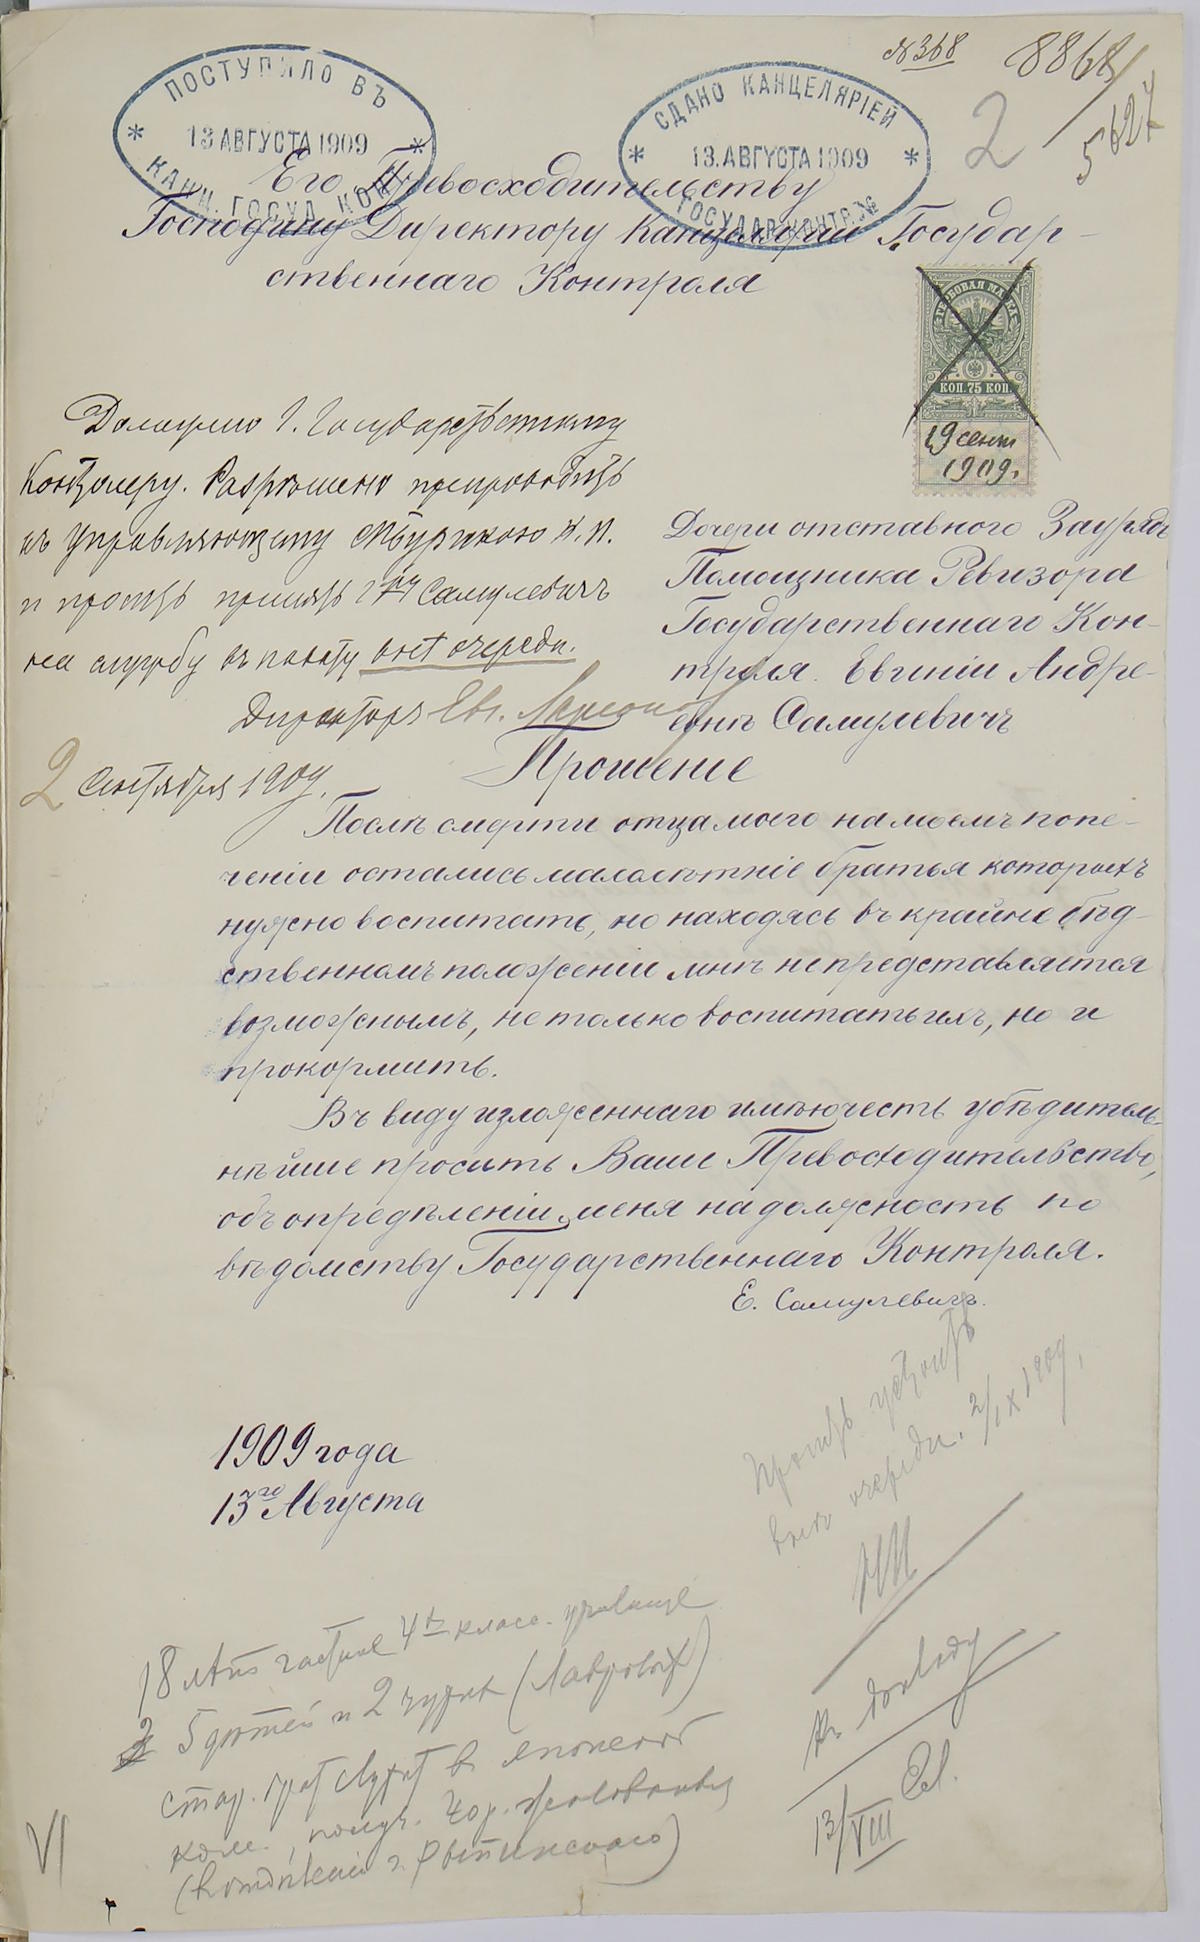 № 368
8868/5627
2
ПОСТУПИЛО ВЪ
13 АВГУСТА 1909
КАНЦ. ГОСУД. КОН
СДАНО КАНЦЕЛЯРІЕЙ
13. АВГУСТА 1909
ГОСУДАР. КОНТР. №
Его Превосходительству
Господину Директору Канцеляріи Государ-
ственнаго Контроля
ГЕРБОВАЯ МАРКА
КОП. 75 КОП.
19 сент
1909 г.
Доложено Г. Государственному
Контролеру. Разрѣшено препроводить
къ Управляющему
и просить принять г-жу Самулевичъ
на службу въ палату внѣ очереди.
Директоръ Евг.
2 Сентября 1909.
Дочери отставного Заурядъ
Помощника Ревизора
Государственнаго Кон-
троля Евгеніи Андре-
евнѣ Самулевичъ
Прошеніе
Послѣ смерти отца моего на моемъ попе-
ченіи остались малолѣтніе братья которыхъ
нужно воспитать, но находясь въ крайне бѣд-
ственномъ положеніи мнѣ не представляется
возможнымъ, не только воспитать ихъ, но и
прокормить.
Въ виду изложеннаго имѣю честь убѣдитель-
нѣйше просить Ваше Превосходительство,
объ опредѣленіи меня на должность по
вѣдомству Государственнаго Контроля.
Е. Самулевичъ.
Просить устроить
внѣ очереди. 2/IX 1909.
1909 года
13го Августа
18 лѣтъ 4х класс. училище
5 дѣтей и 2
стар. братъ служитъ в
жалованья
Къ докладу
13/VIII
VI